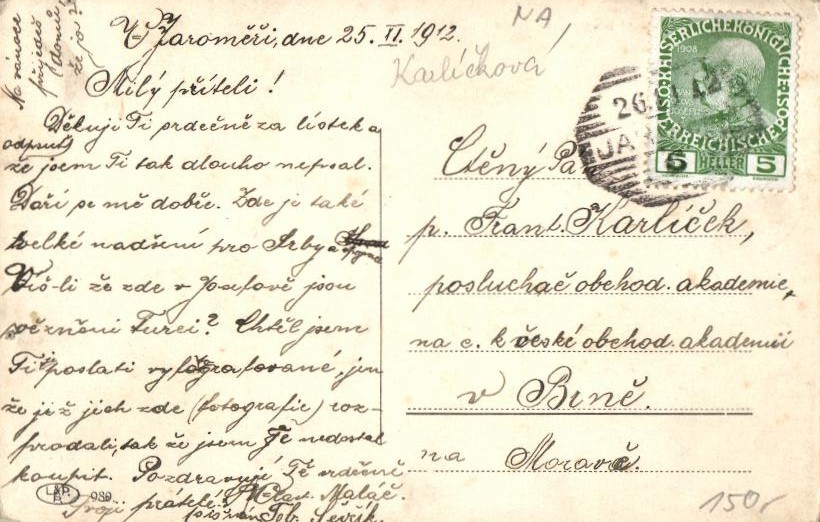 Na vánoce
přijedeš
domů
že jo?
V Jaroměři, dne 25. II. 1912.
Milý příteli!
Děkuji Ti srdečně za lístek a
odpusť,
že jsem Ti tak dlouho nepsal.
Daří se mě dobře. Zde je také
velké nadšení pro Srby a
Víš-li že zde v Josefově jsou
vězněni Turci? Chtěl jsem
Ti je poslati vyfotografované, jen
že již jich zde (fotografie) roz-
prodali, tak že jsem je nedostal
koupit. Pozdravují Tě srdečně
Tvoji přátelé: Vlast. Maláč.
Tob. Ševčík
L&P
P.
989
NA
Karlíčková
26.
JAR
1908
KAISERLICHE KÖNIGLICHE
ÖSTERREICHISCHE POST
5 HELLER 5
Ctěný Pá
p. Frant. Karlíček,
posluchač obchod. akademie,
na c. k. české obchod. akademii
v Brně.
na Moravě.
150,-